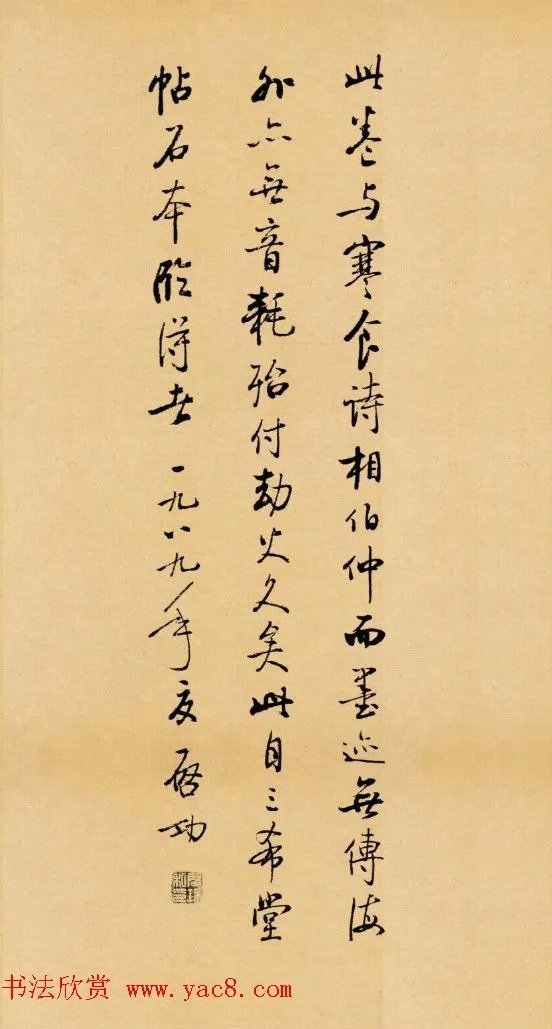 此卷与寒食诗相伯仲而墨迹無傳海
外亦無音耗殆付劫火久矣此自三希堂
帖石本臨得者一九八九年夏启功
书法欣赏 www.yac8.com